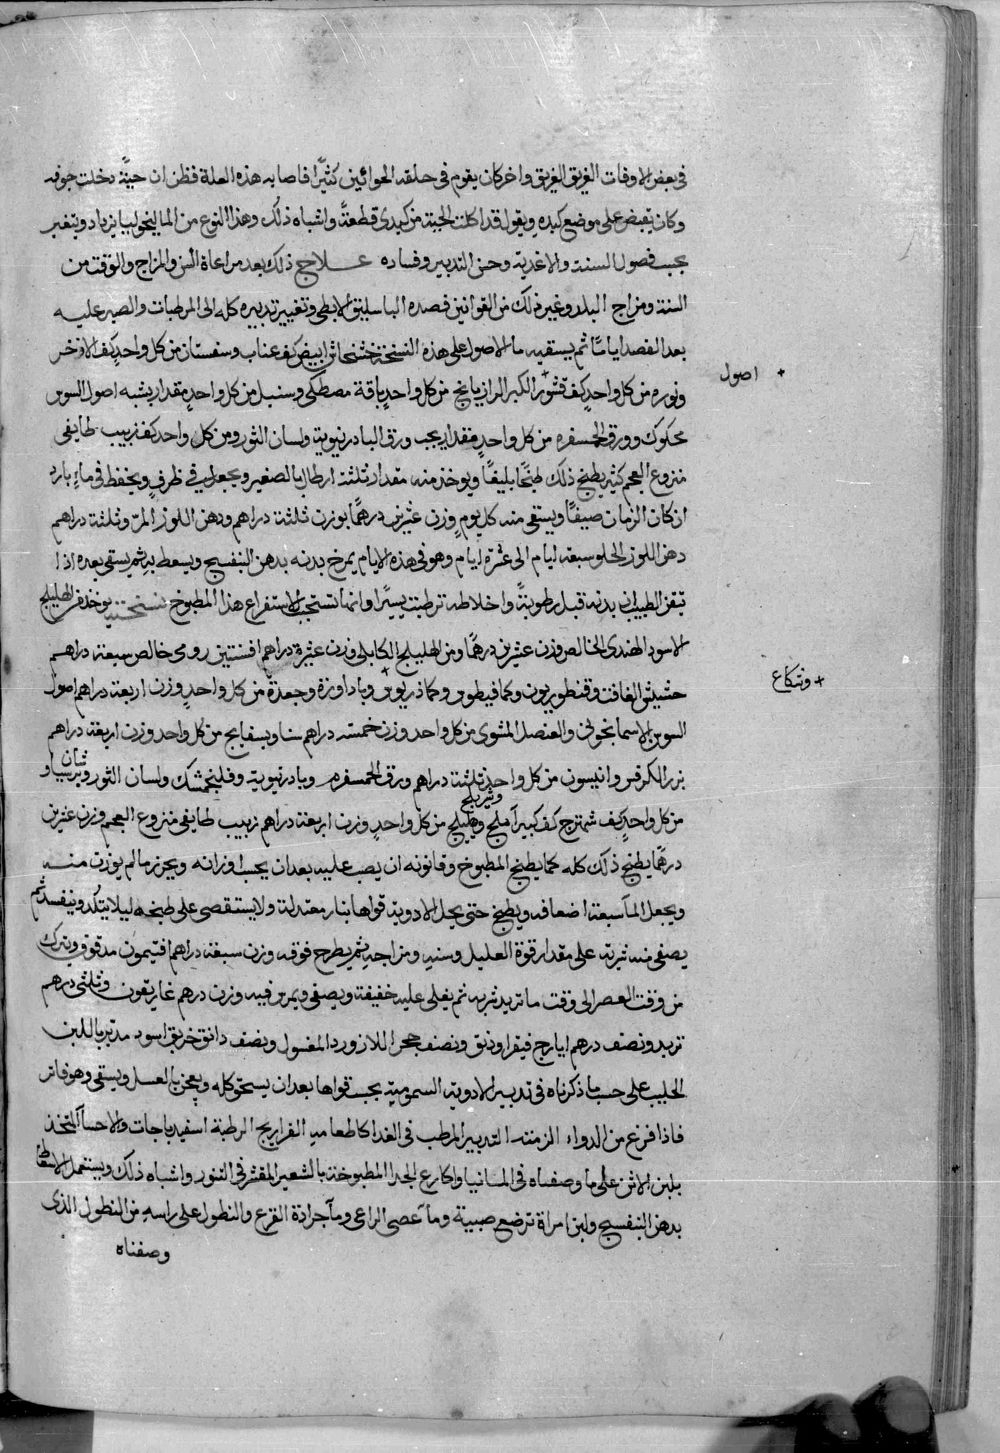 في بعض الاوقات الغريق الغريق واخر كان يقوم في حلقه الحوائين كثيرًا فاصابه هذه العلة فظن ان حيَّة دخلت جوفه
وكان يقبض على موضع كبده ويقول قد اكلت الحية من كبدى قطعةً واشباه ذلك وهذا النوع من الماليخوليا يزداد ويتغير
بحسب فصول السنة والاغذية وحسن التدبير وفساده علاج ذلك بعد مراعاة السن والمزاج والوقت من
السنة ومزاج البلد وغير ذلك من القوانين فصده الباسليق الابطى وتغيير تدبيره كله الى المرطبات والصبر عليه
بعد الفصد اياما ثم يسقيه ما الاصول على هذه النسخة ابيض كف عناب وسفستان من كل واحد كف الاذخر
ونوره من كل واحد كف قشور الكبر الرازيانج من كل واحد باقة مصطكى وسنبل من كل واحد مقدار يشبه اصول السوس
محكوك وورق الحمسفرم من كل واحد مقدار يجب ورق البادرنبوية ولسان الثور من كل واحد كف زبيب طايفى
منزوع العجم كثير يطبخ ذلك طبخًا بليغًا ويوخذ منه مقدار ثلثة ارطال بالصغير ويجعل في ظرف ويحفظ في ماء بارد
ان كان الزمان صيفًا ويسقى منه كل يوم وزن عشرين درهمًا بوزن ثلثة دراهم دهن اللوز المر وثلثة دراهم
دهن اللوز الحلو سبعة ايام الى عشرة ايام وهو في هذه الايام يمرخ بدنه بدهن البنفسج ويسعط به ثم يسقى بعده اذا
تيقن الطبيب ان بدنه قبل رطوبةً واخلاطه ترطبت يسيرًا وانها تستجيب الاستفراغ هذا المطبوخ نسخته يوخذ من الهليلج
الاسود الهندى الخالص وزن عشرين درهمًا ومن الهليلج الكابلى وزن عشرة دراهم افسنتين رومى خالص سبعة دراهم
حشيش الغافت وقنطوريون وكمافيطوس وكماذريوس وباداورة وجعدة من كل واحد وزن اربعة دراهم اصول
السوسن الاسمانجونى والعنصل المشوى من كل واحد وزن خمسة دراهم سنا وبسفايج من كل واحد وزن اربعة دراهم
بزر الكرفس وانيسون من كل واحد ثلثة دراهم ورق الحمسفرم وبادرنبوية وفلنجمشك ولسان الثور وبرسياوشان
من كل واحد كف شهترج كف كبير املج وبليلج وشيرملج من كل واحد وزن اربعة دراهم زبيب طايفى منزوع العجم وزن عشرين
درهمًا يطبخ ذلك كله كما يطبخ المطبوخ وقانونه ان يصب عليه بعد ان يحسب اوزانه ويحزر ما لم يوزن منه
ويجعل المآ سبعة اضعافه ويطبخ حتى يحل الادوية قواها بنار معتدلة ولا يستقصى على طبخه ليلا يتكدر ويفسد ثم
يصفى منه شربة على مقدار قوة العليل وسنه ومزاجه ثم يطرح فوقه وزن سبعة دراهم افتيمون مدقوق ويترك
من وقت العصر الى وقت ما تريد شربه ثم يغلى عليه خفيفة ويصفى ويمرس فيه وزن درهم غاريقون وثلثى درهم
تربد ونصف درهم ايارج فيقرا ودنق ونصف حجر اللازورد المغسول ونصف دانق خربق اسود مدبر باللبن
الحليب على حسب ما ذكرناه في تدبير الادوية السمومية بحسب قواها بعد ان يسحق كله ويعجن بالعسل ويسقى وهو فاتر
فاذا فرغ من الدواء الزمته التدبير المرطب في الغدا كاطعامه الفراريج الرطبة اسفيدباجات والاحساآ المتخذ
بلبن الاتن على ما وصفناه في المانيا واكارع الجدا المطبوخة بالشعير المقشر في التنور واشباه ذلك ويستعمل الاسعاط
بدهن البنفسج ولبن امراة ترضع صبية ومآ عصى الراعى ومآ جرادة القرع والنطول على راسه من النطول الذى
وصفناه
اصول
وشكاع